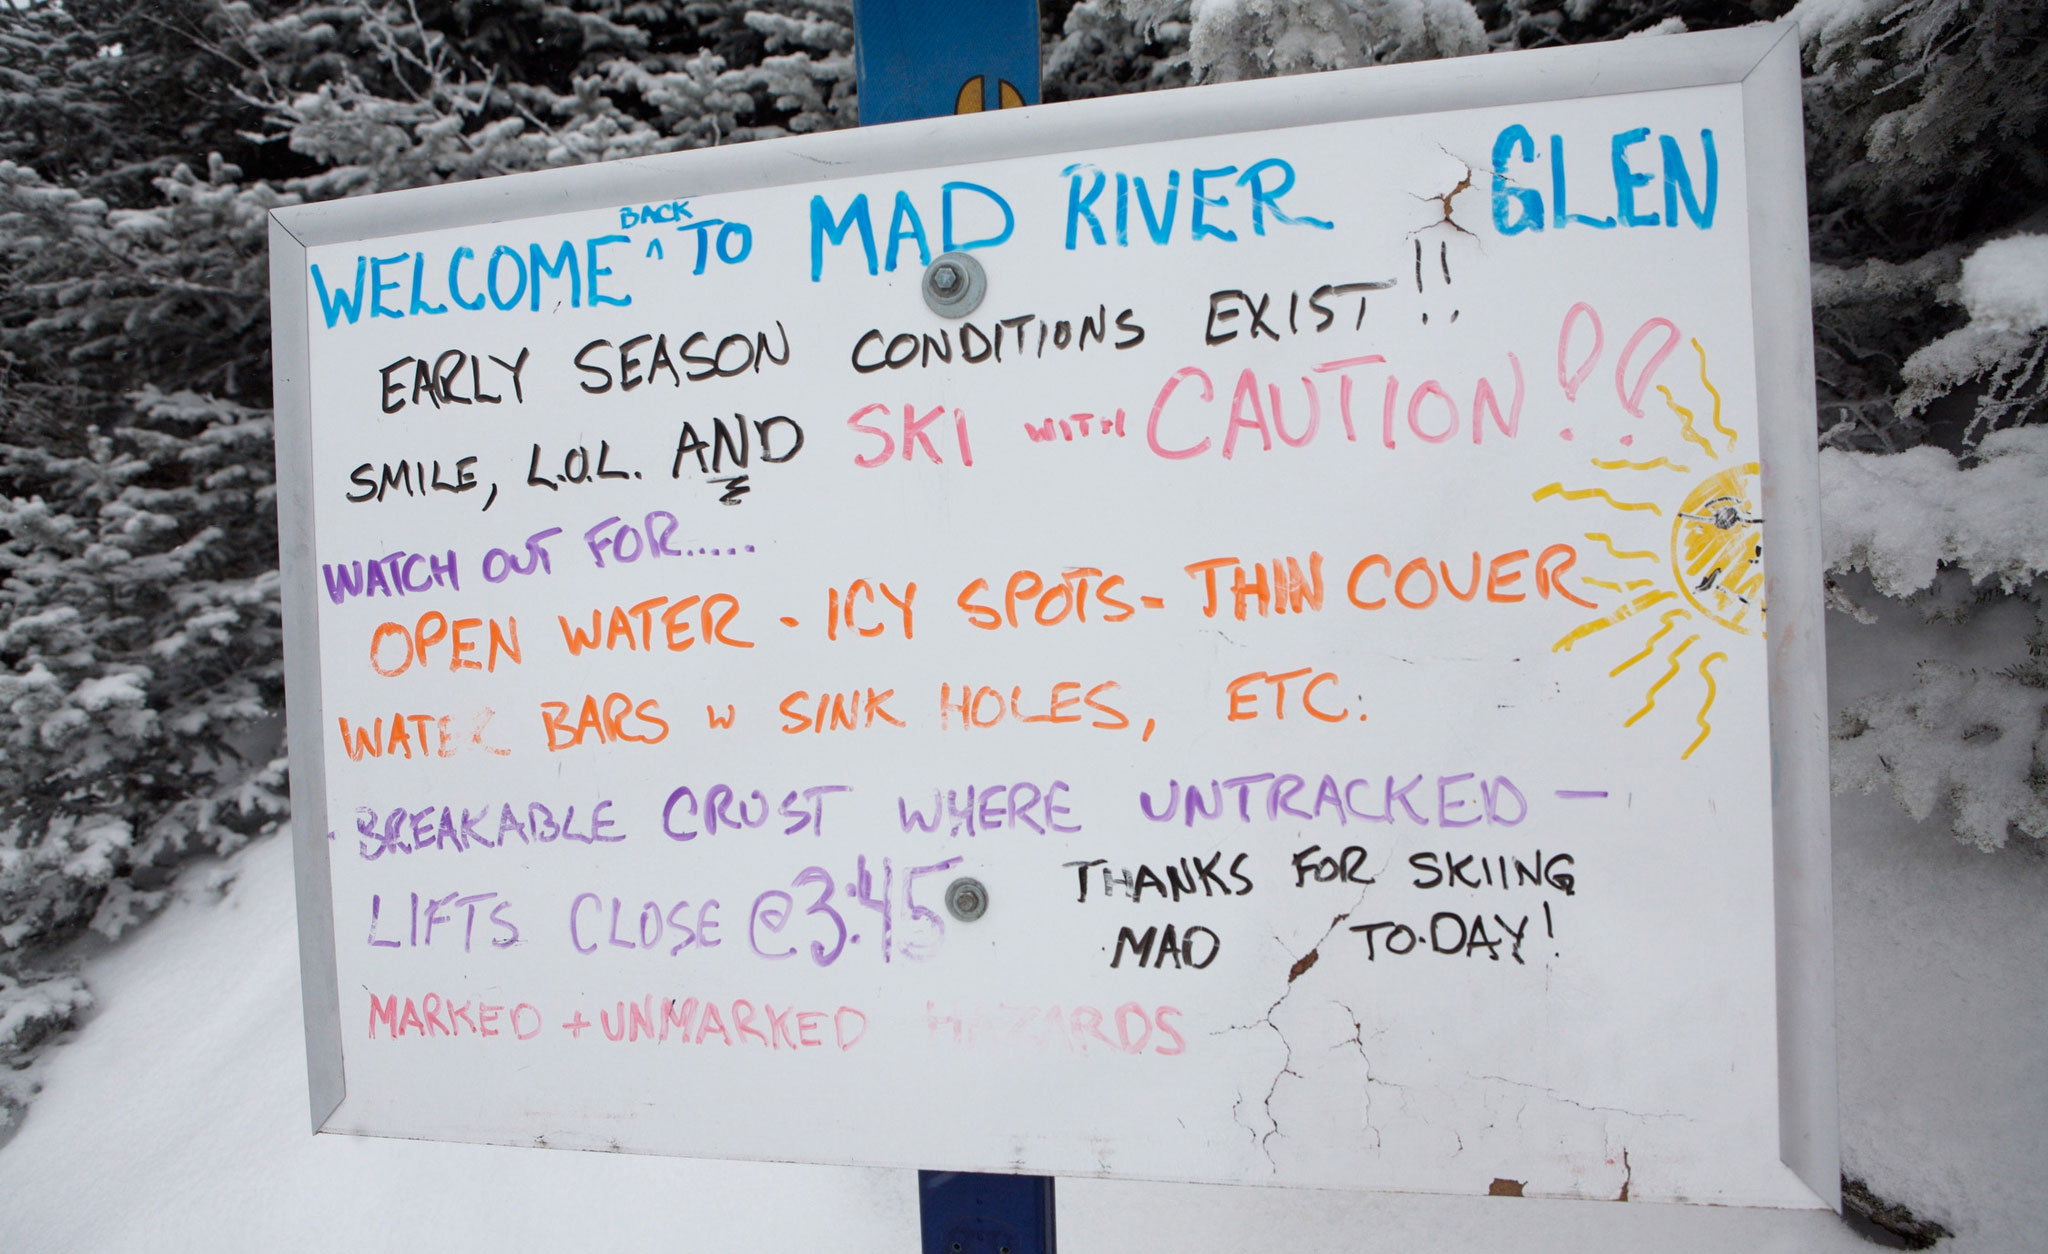 WELCOME ^BACK TO MAD RIVER GLEN
EARLY SEASON CONDITIONS EXIST!!
SMILE, L.O.L. AND SKI WITH CAUTION!!
WATCH OUT FOR.....
OPEN WATER - ICY SPOTS - THIN COVER
WATER BARS W SINK HOLES, ETC.
- BREAKABLE CRUST WHERE UNTRACKED -
LIFTS CLOSE @ 3:45
THANKS FOR SKIING
MAD TO-DAY!
MARKED + UNMARKED HAZARDS